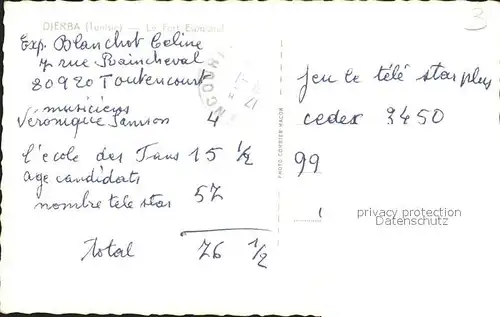 DJERBA (Tunisie) — Le Fort Espagnol
Exp. Blanchot Celine
7 rue Raincheval
80920 Toutencourt
musiciens
Véronique Sanson 4
l'école des Fans 15 1/2
age candidats
nombre tele star 57
Total 76 1/2
PHOTO COMBIER MACON
3
Jeu le télé star plus
cedex 3450
99
privacy protection
Datenschutz